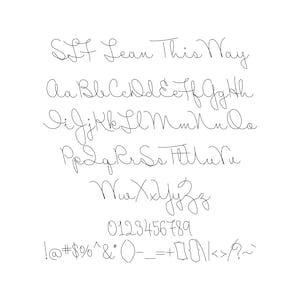 SLF Lean This Way
AaBbCcDdEeFfGgHh
IiJjKkLlMmNnOo
PpQqRrSsTtUuVv
WwXxYyZz
0123456789
!@#$%^&*()-_=+[]{}\|<>/?~`